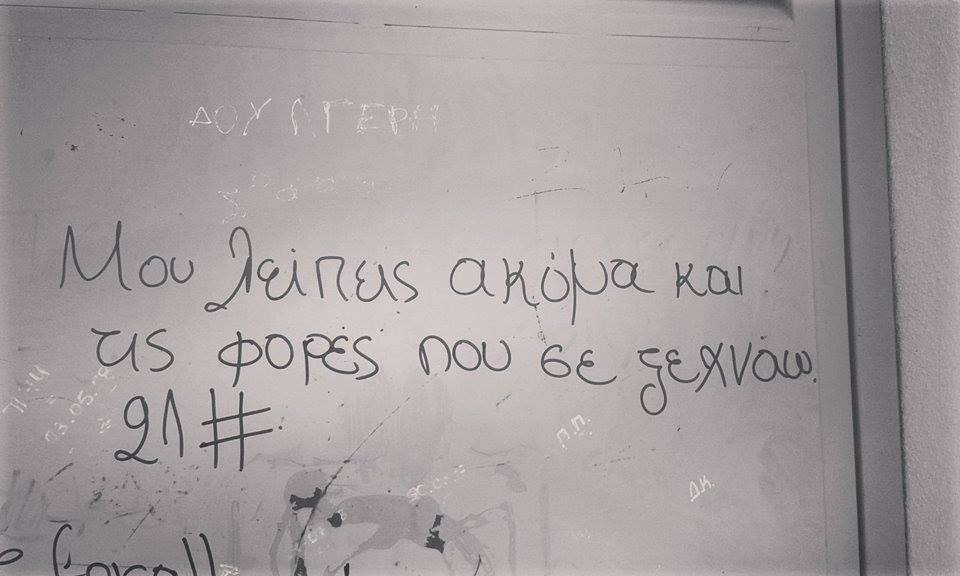 Μου λείπεις ακόμα και
τις φορές που σε ξεχνάω.
21#
Π.Π.
Δ.Κ.